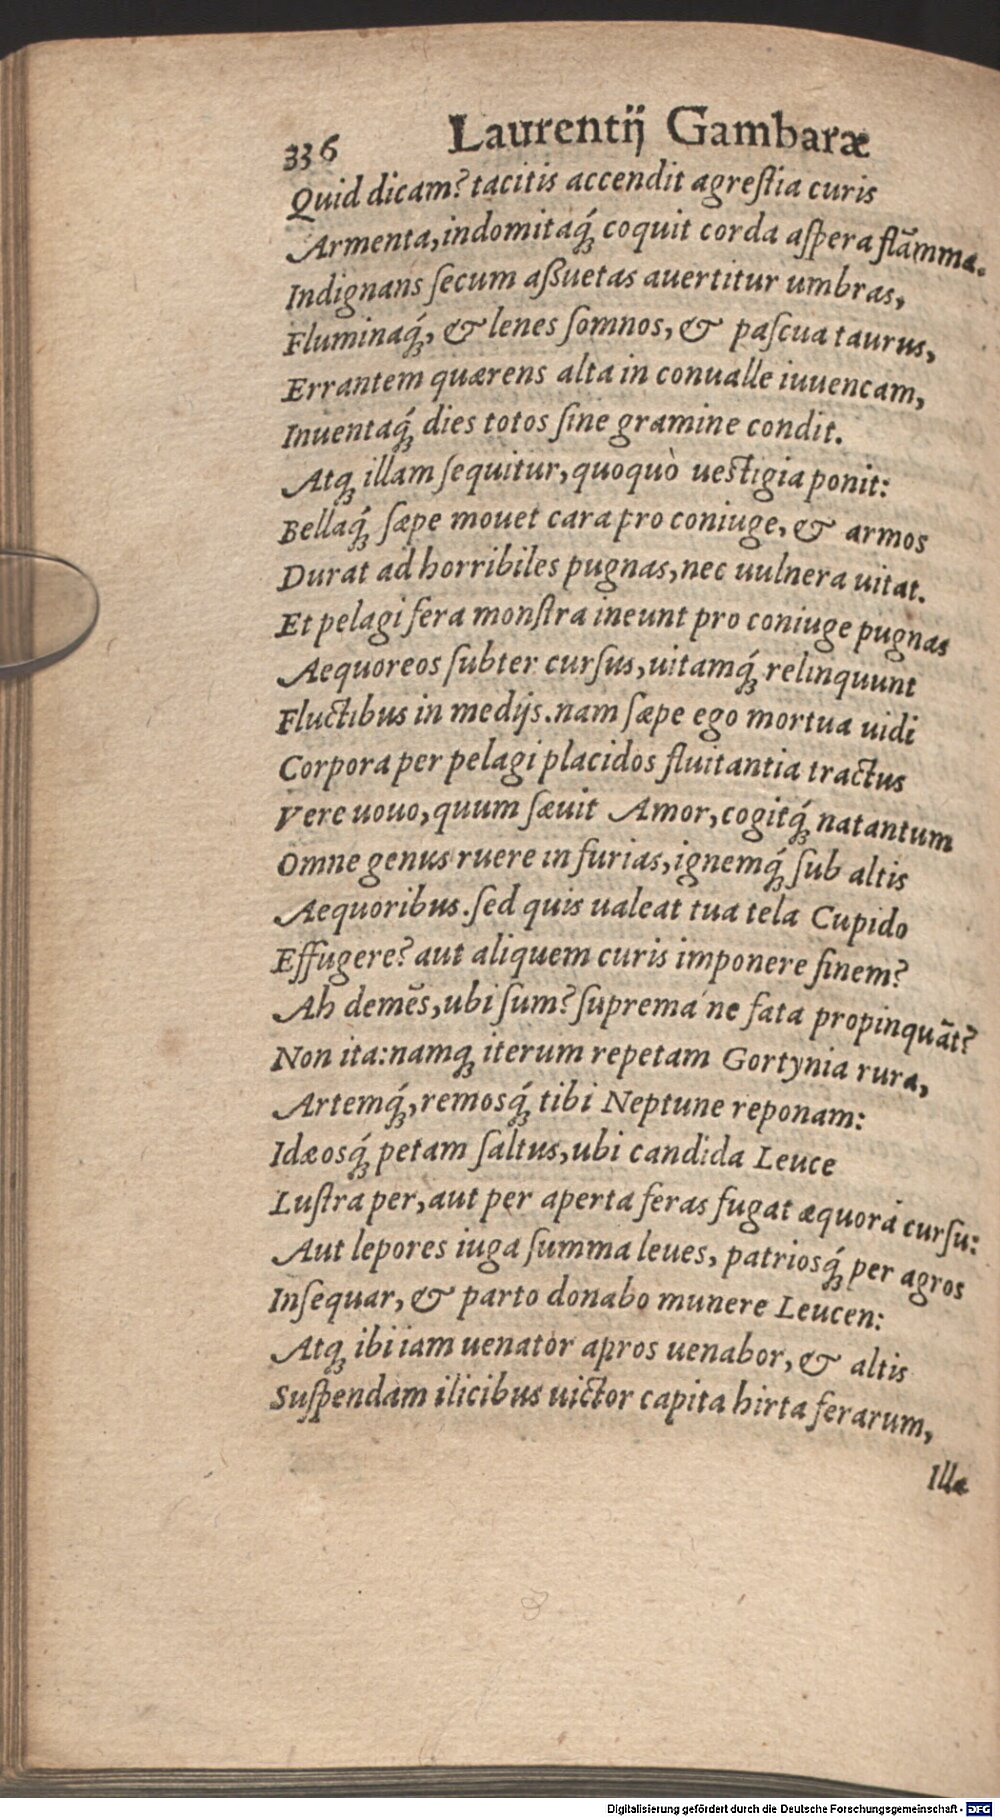 336 Laurentij Gambaræ
Quid dicam? tacitis accendit agreſtia curis
Armenta, indomitaq́; coquit corda aſpera flãmma.
Indignans ſecum aßuetas auertitur umbras,
Fluminaq́;, & lenes ſomnos, & paſcua taurus,
Errantem quærens alta in conualle iuuencam,
Inuentaq́; dies totos ſine gramine condit.
Atq; illam ſequitur, quoquò ueſtigia ponit:
Bellaq́; ſæpe mouet cara pro coniuge, & armos
Durat ad horribiles pugnas, nec uulnera uitat.
Et pelagi fera monſtra ineunt pro coniuge pugnas
Aequoreos ſubter curſus, uitamq́; relinquunt
Fluctibus in medijs. nam ſæpe ego mortua uidi
Corpora per pelagi placidos fluitantia tractus
Vere uouo, quum ſæuit Amor, cogitq́; natantum
Omne genus ruere in furias, ignemq́; ſub altis
Aequoribus. ſed quis ualeat tua tela Cupido
Effugere? aut aliquem curis imponere finem?
Ah demẽs, ubi ſum? ſuprema ́ne fata propinquãt?
Non ita: namq; iterum repetam Gortynia rura,
Artemq́;, remosq́; tibi Neptune reponam:
Idæosq́; petam ſaltus, ubi candida Leuce
Luſtra per, aut per aperta feras fugat æquora curſu:
Aut lepores iuga ſumma leues, patriosq́; per agros
Inſequar, & parto donabo munere Leucen:
Atq; ibi iam uenator apros uenabor, & altis
Suſpendam ilicibus uictor capita hirta ferarum,
Illæ
Digitalisierung gefördert durch die Deutsche Forschungsgemeinschaft - DFG